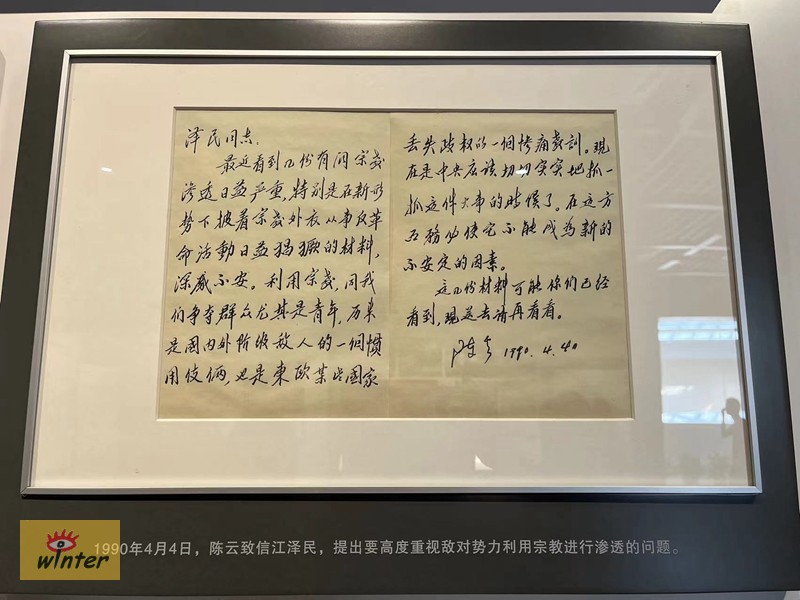 泽民同志:
最近看到几份有関宗教
渗透日益严重,特别是在新形
势下披着宗教外衣从事反革
命活動日益猖獗的材料,
深感不安。利用宗教,同我
们争夺群众尤其是青年,历来
是国内外阶级敌人的一個慣
用伎俩,也是東欧某些國家
丢失政权的一個惨痛教訓。现
在是中央应该切切实实地抓一
抓这件大事的时候了。在这方
面務必使它不能成为新的
不安定的因素。
这几份材料可能你们已经
看到,现送去请再看看。
陈云 1990.4.4日
1990年4月4日,陈云致信江泽民,提出要高度重视敌对势力利用宗教进行渗透的问题。
winter